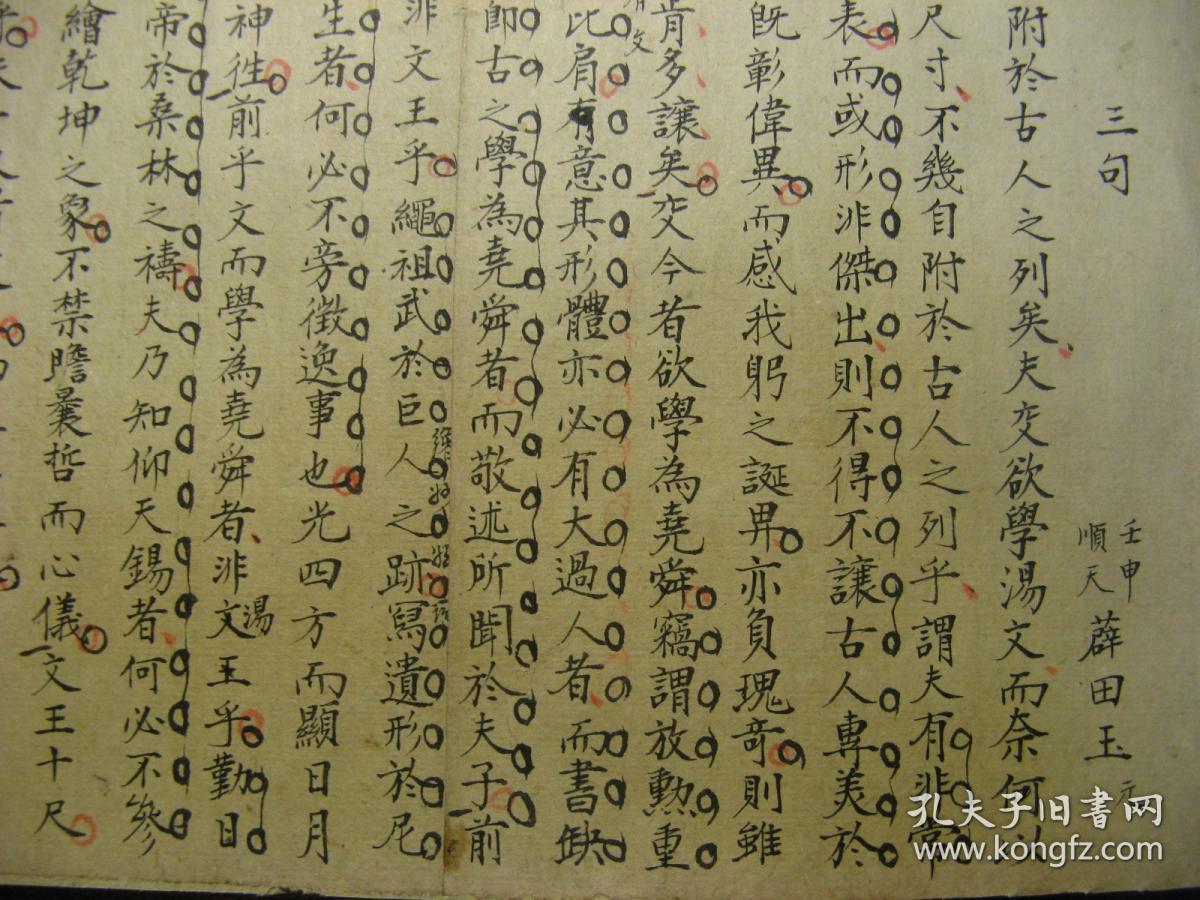 三句
壬申
順天
薜田玉
附於古人之列矣夫交欲學湯文而奈何以
尺寸不幾自附於古人之列乎謂夫有非常
表而或形非傑出則不得不讓古人專美於
既彰偉異而感我躬之誕畀亦負瑰奇則雖
肯多讓矣交今者欲學為堯舜竊謂放勲重
比肩有意其形體亦必有大過人者而書缺
即古之學為堯舜者而敬述所聞於夫子前
非文王乎繩祖武於巨人之跡寫遺形於尼
生者何必不旁徵逸事也光四方而顯日月
神徃前乎文而學為堯舜者非文王乎勤日
湯
帝於桑林之禱夫乃知仰天錫者何必不參
繪乾坤之象不禁瞻曩哲而心儀文王十尺
孔夫子旧書网
www.kongfz.com